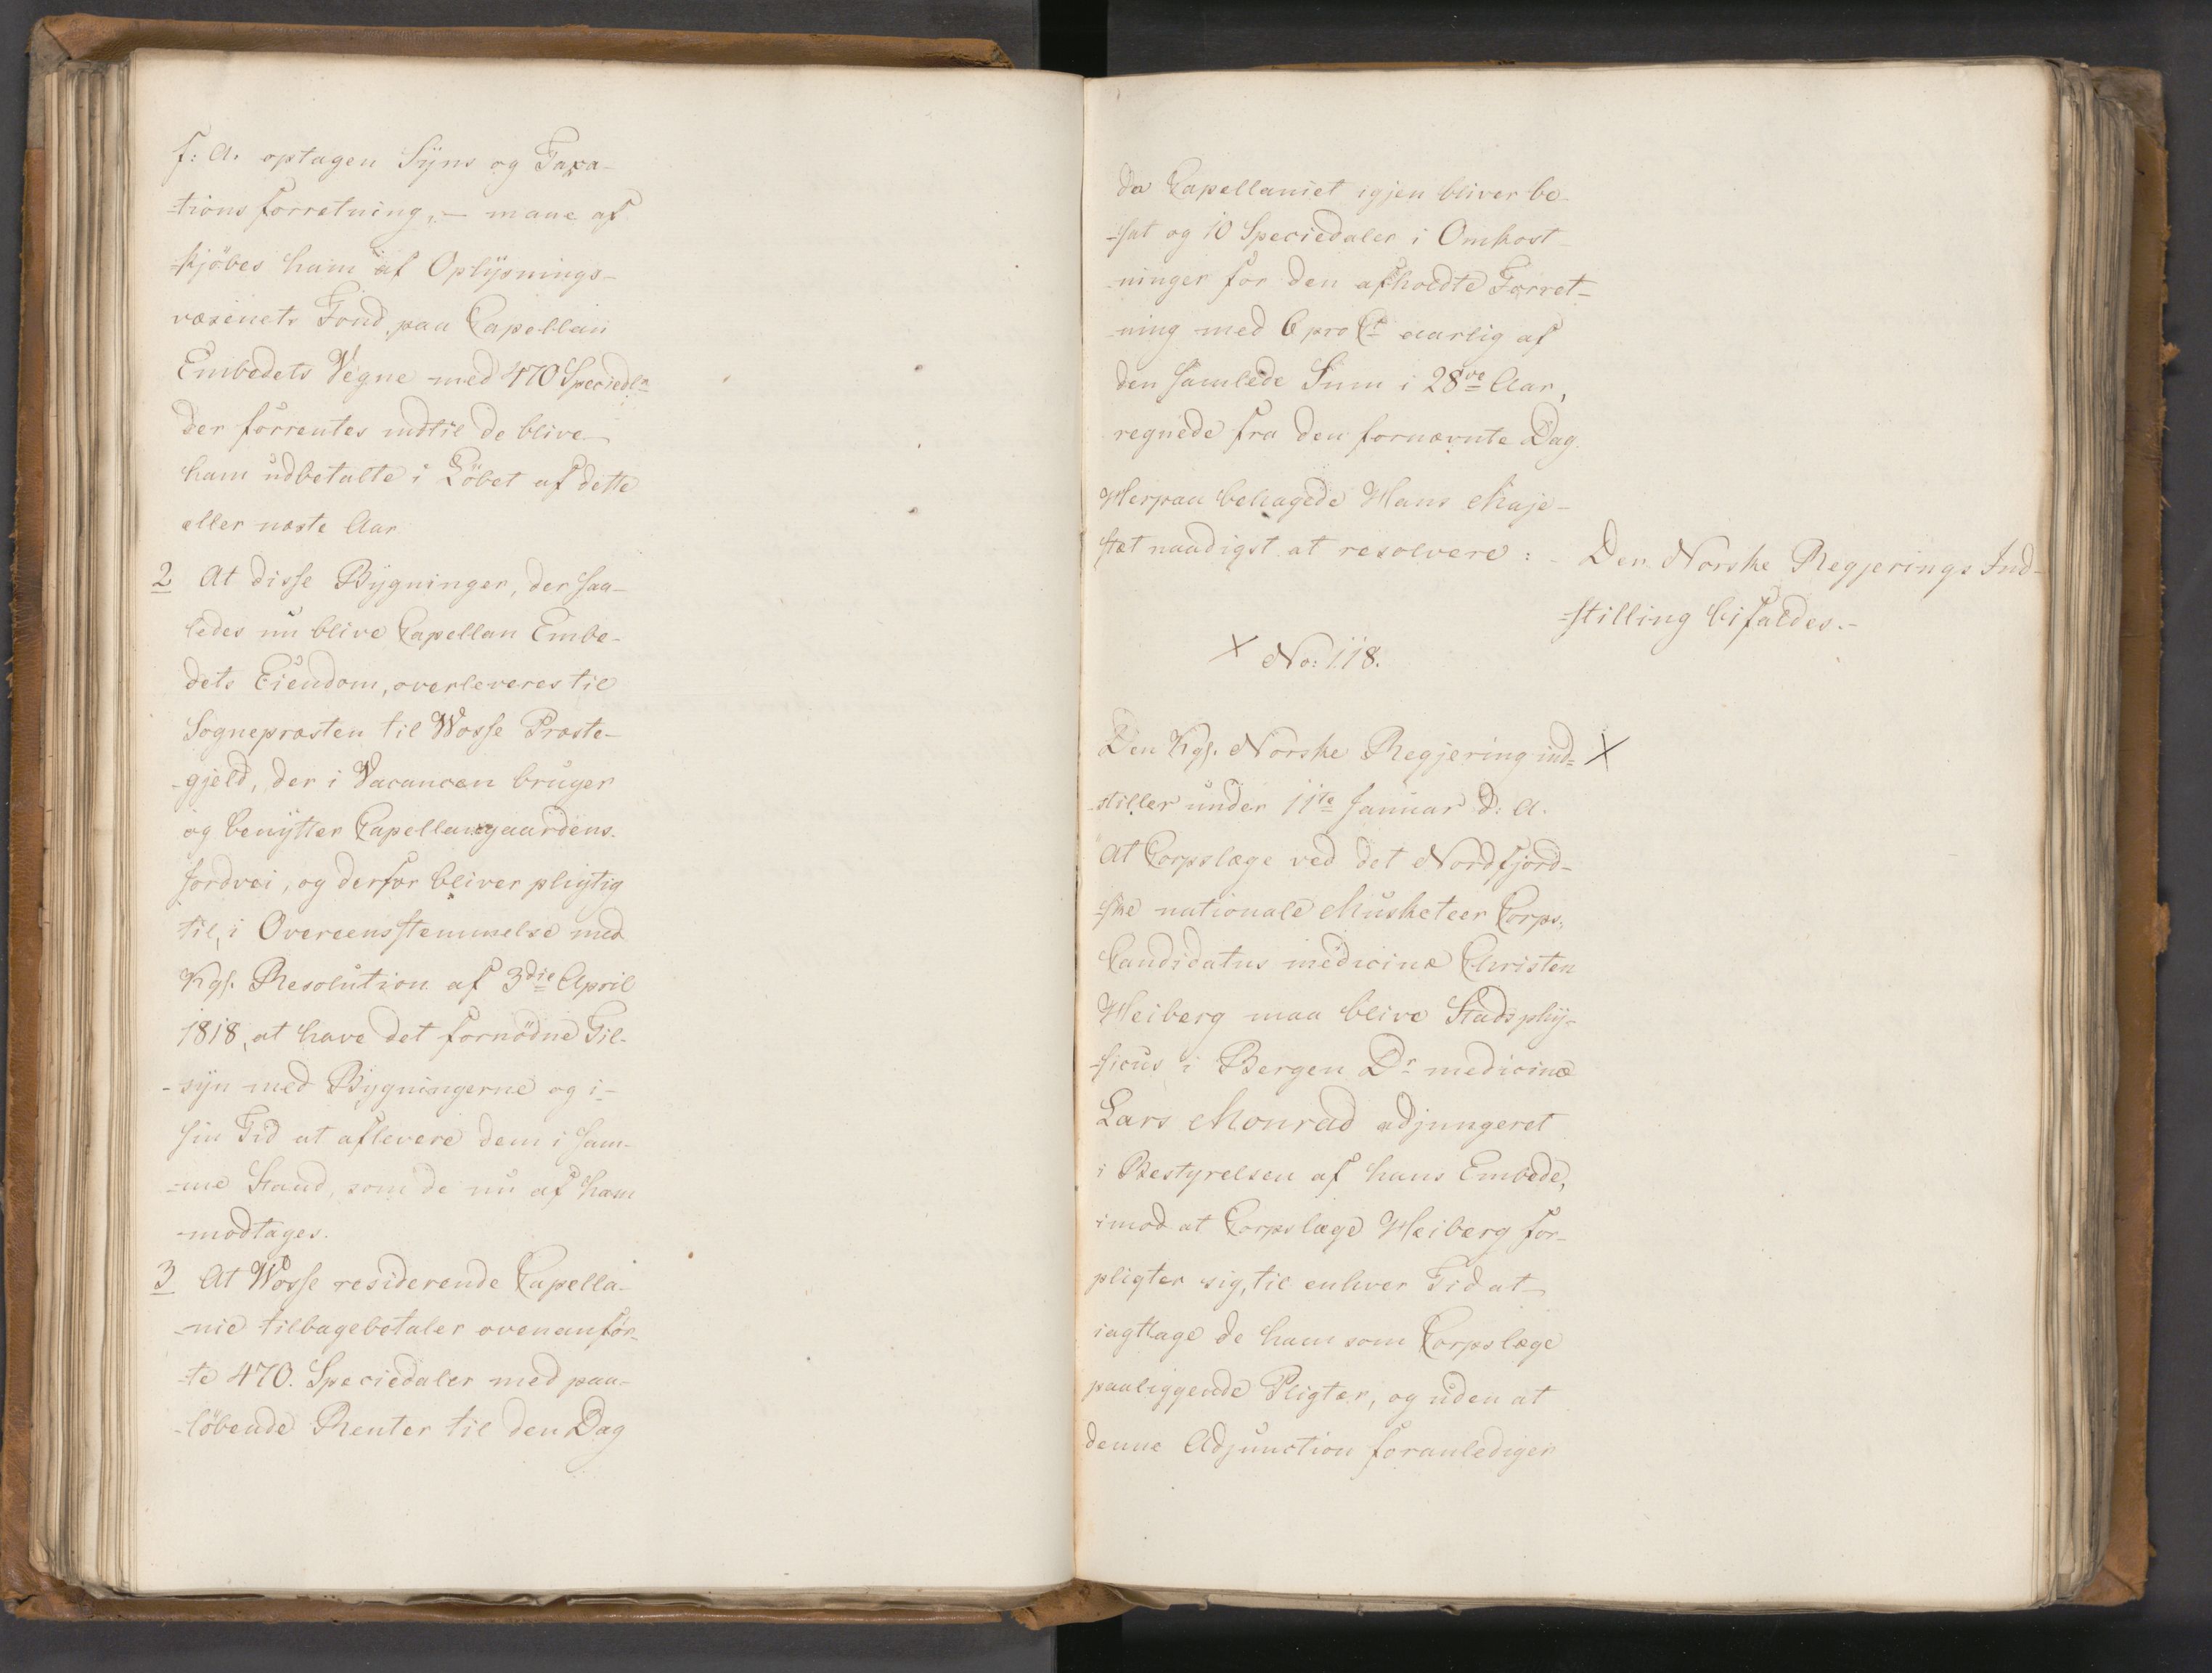 f: A. optagen Syns og Taxa-
-tionsforretning, - maae af-
-kjöbes ham af Oplysnings-
væsenets Fond paa Capellan
Embedets Vegne med 470 Speciedlr
der forrentes indtil de blive
ham udbetalte i Löbet af dette
eller næste Aar.
2 At disse Bygninger, der saa-
ledes nu blive Capellan Embe-
dets Eiendom, overleveres til
Sognepræsten til Wosse Præste-
-gjeld, der i Vacancen bruger
og benytter Capellangaardens
Jordvei, og derfor bliver pligtig
til, i Overeensstemmelse med
Kgl. Resolution af 3die April
1818, at have det fornödne Til-
-syn med Bygningerne og i-
sin Tid at aflevere dem i sam-
-me Stand, som de nu af ham
modtages.
3 At Wosse residerende Capella-
-nie tilbagebetaler ovenanför-
-te 470. Speciedaler med paa-
-löbende Renter til den Dag
da Capellaniet igjen bliver be-
-sat og 10 Speciedaler i Omkost-
-ninger for den afholdte Forret-
-ning med 6 pro Ct aarlig af
den samlede Sum i 28ve Aar,
regnede fra den fornævnte Dag.
Herpaa behagede Hans Maje-
stæt naadigst at resolvere: - Den Norske Regjerings Ind-
-stilling bifaldes.-
X No: 118.
Den Kgl. Norske Regjering ind= X
-stiller under 11te Januar d: A.
At Corpslæge ved det Nordfjord-
-ske nationale Musketeer Corps,
Candidatus medicinæ Christen
Heiberg maa blive Stadsphy-
-sicus i Bergen Dr medicinæ
Lars Monrad adjungeret
i Bestyrelsen af hans Embede,
imod at Corpslæge Heiberg for-
pligter sig, til enhver Tid at
iagttage de ham som Corpslæge
paaliggende Pligter, og uden at
denne Adjunction foranlediger